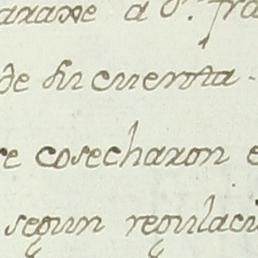 araxe a dⁿ. fra
de su cuenta.
re cosecharon e
segun regulaci